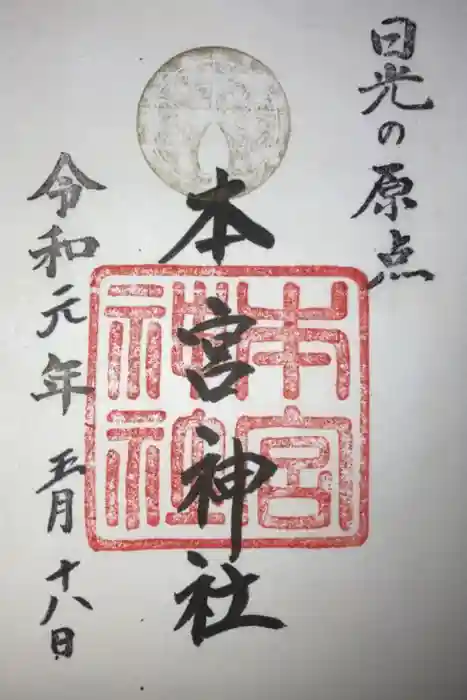 日光の原点
本宮神社
本宮
神社
令和元年 五月十八日